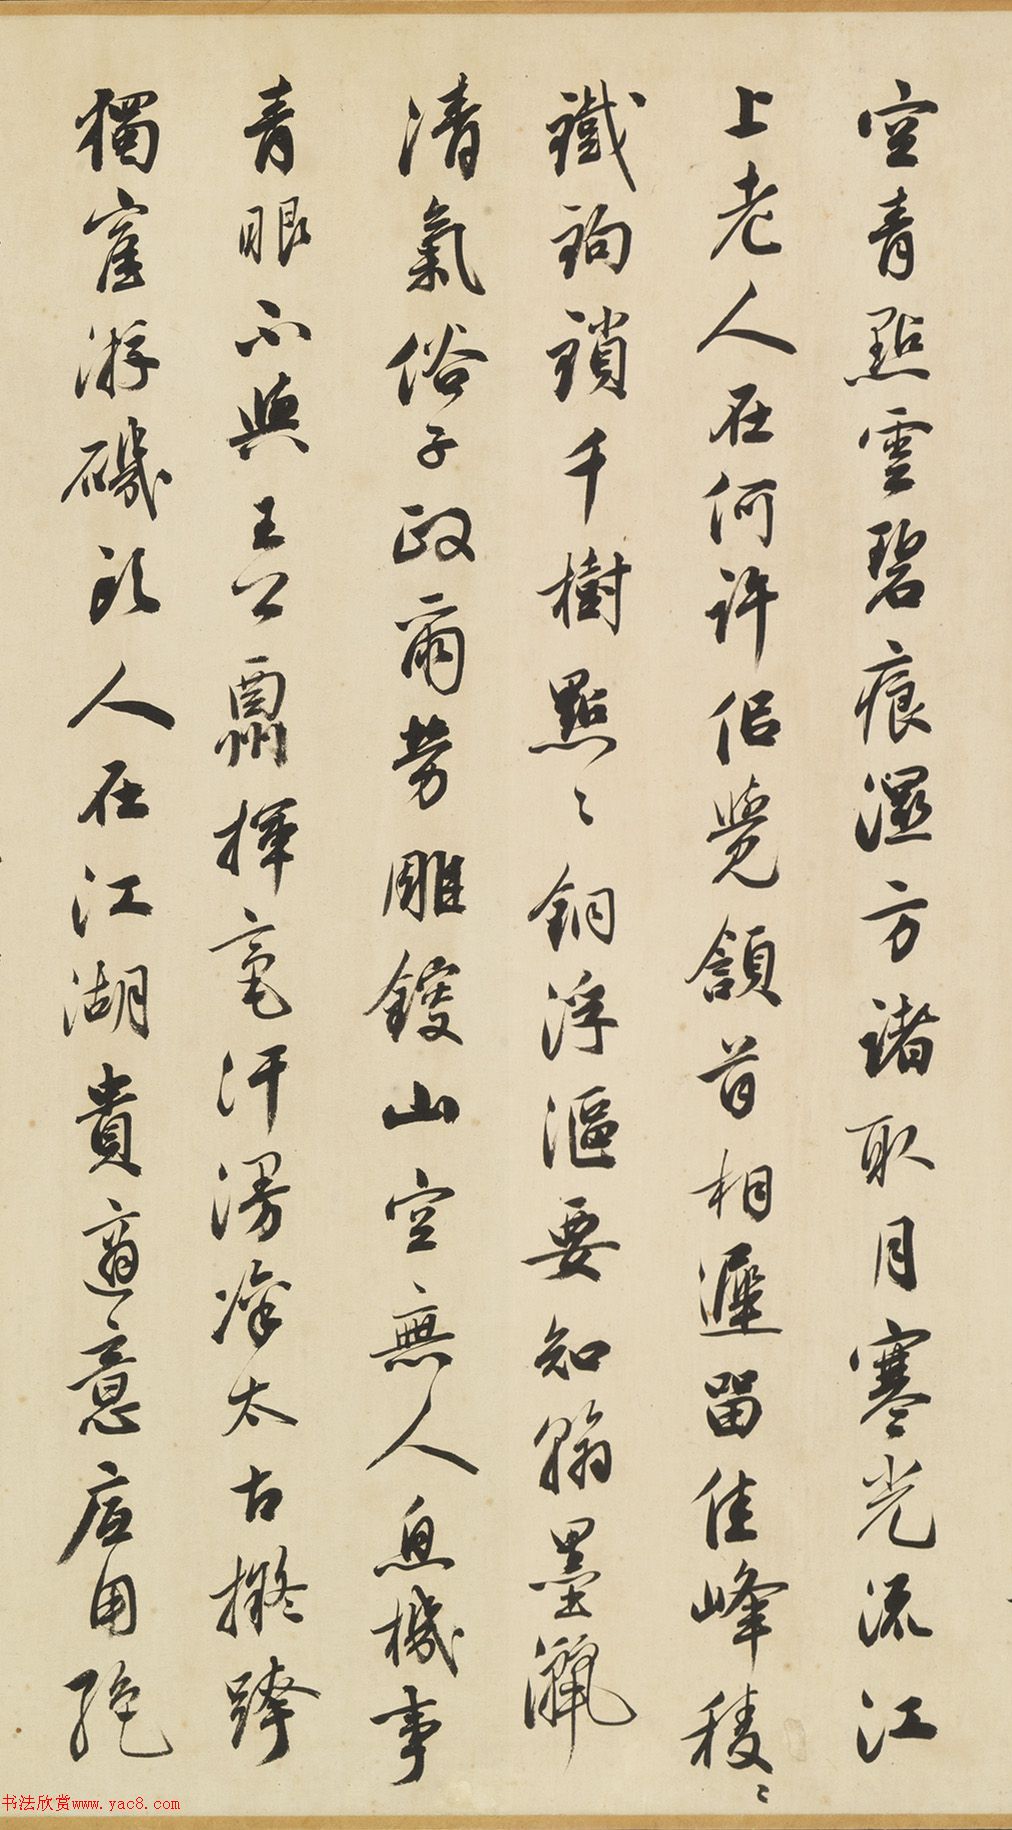 空青點雲碧痕濕方諸取月寒光流江
上老人在何許但覺頷首相遲留佳峰稜〻
鐵鉤鎖千樹點〻銅浮漚要知翰墨灑
清氣俗子政爾勞雕鎪山空無人息機事
青眼不與王公酬揮毫汗漫凌太古擬跨
獨鶴游磯頭人在江湖貴適意底用絕
书法欣赏www.yac8.com